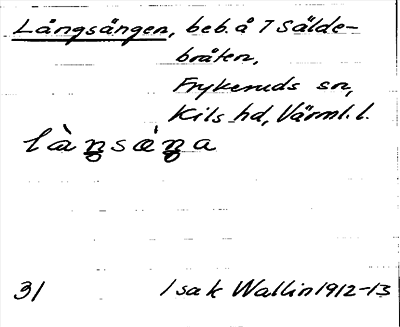 Långsängen, beb. å 7 Sälde-
bråten,
Frykeruds sn,
Kils hd, Värml. l.
là̀ŋsæ̀ŋa
31 Isak Wallin 1912-13